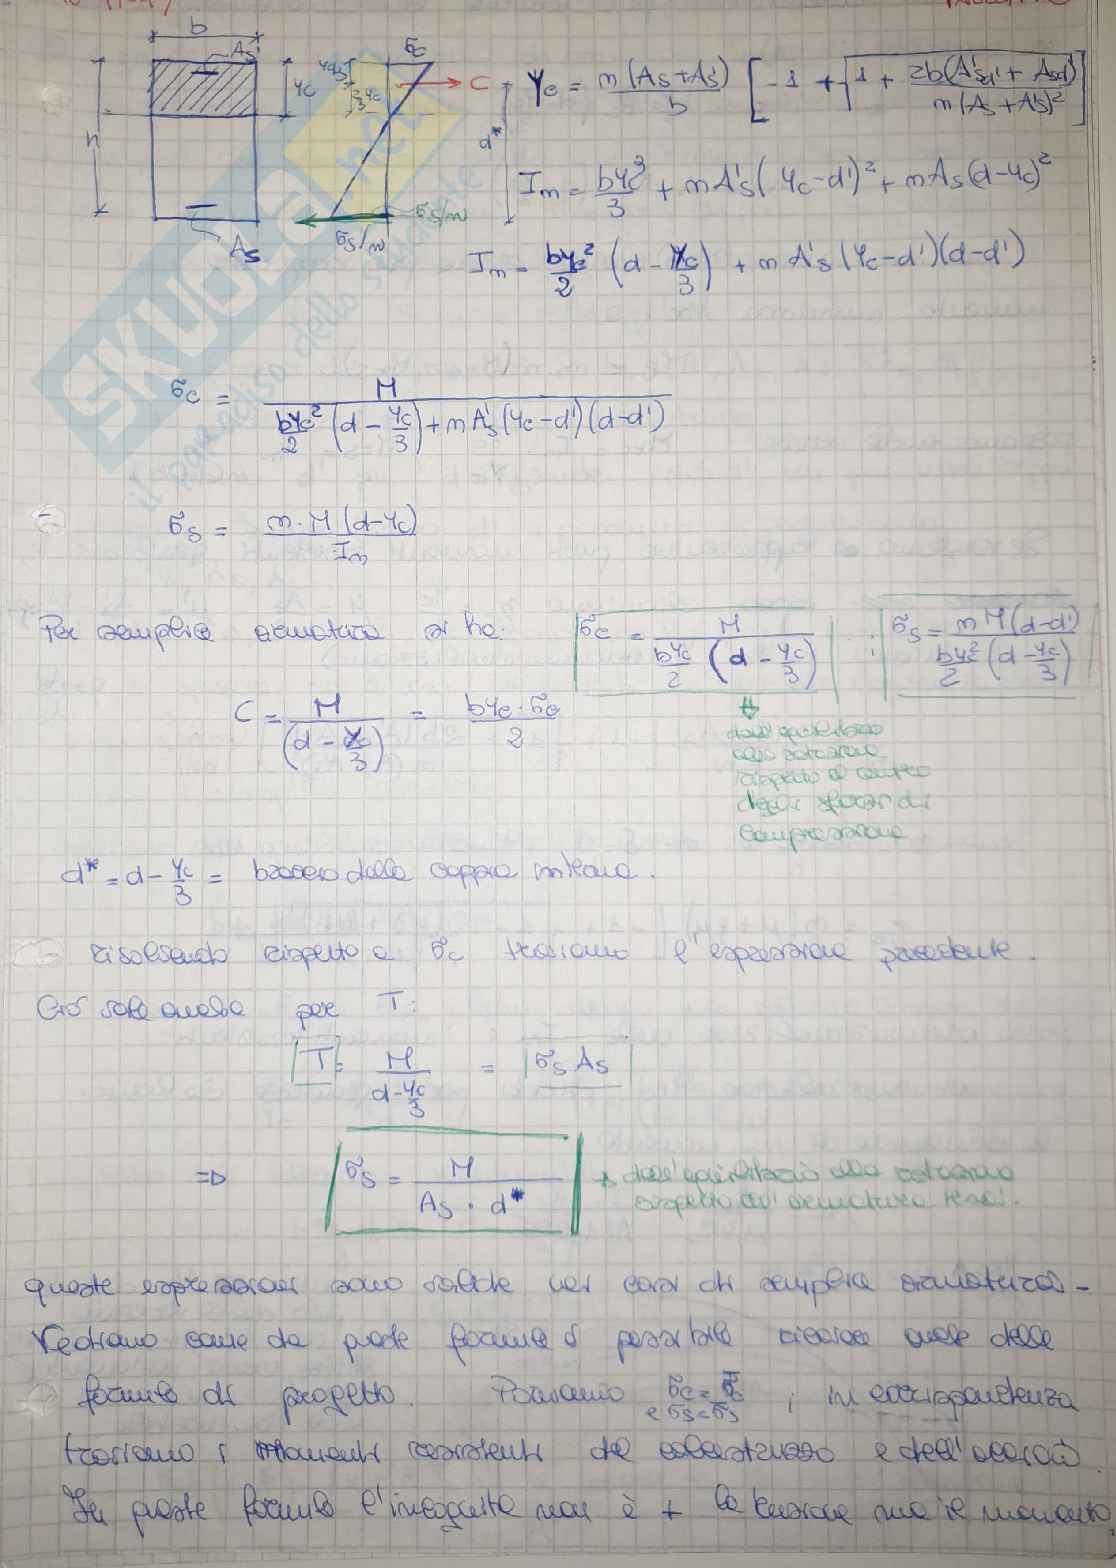 b
As
σc
yc
C
d*
h
As
σs/n
σs/n
Yc = n(As+A's)/b [-1 + √(1 + 2b(A's d' + As d)/(n(As+A's)²))]
In = byc³/3 + nA's(yc-d')² + nAs(d-yc)²
In = byc²/2 (d - yc/3) + n A's (yc-d')(d-d')
SKUOLA.net
il paradiso dello studente
σc = M / (byc²/2 (d - yc/3) + nA's(yc-d')(d-d'))
σs = n·M(d-yc) / In
Per semplice armatura si ha: σc = M / (byc/2 (d - yc/3)) ; σs = nM(d-d') / (byc²/2 (d - yc/3))
C = M/(d - yc/3) = byc·σc/2
rispetto al centro
degli sforzi di
compressione
d* = d - yc/3 = braccio della coppia interna.
risolvendo rispetto a σc troviamo l'espressione precedente.
Ciò vale anche per T:
T = M/(d-yc/3) = σs As
⇒ σs = M/(As · d*) dall'equilibrio alla rotazione
rispetto all'armatura tesa.
queste espressioni sono valide nei casi di semplice armatura -
Vediamo come da queste formule è possibile ricavare quelle delle
formule di progetto. Poniamo σc = σ̄c e σs = σ̄s ; in corrispondenza
troviamo i momenti resistenti del calcestruzzo e dell'acciaio.
In queste formule l'incognita non è + la tensione ma il momento,